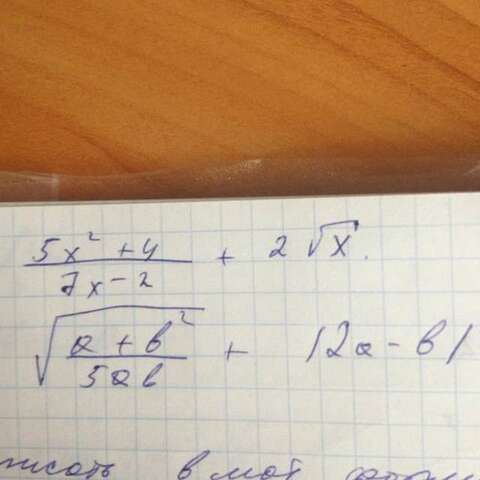 (5x² + 4)/(7x - 2) + 2√x.
√((a + b²)/(5ab)) + |2a - b|
в мат